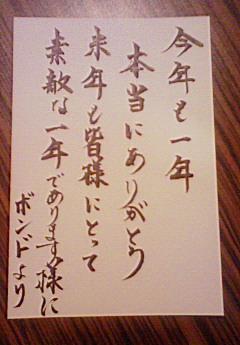 今年も一年
本当にありがとう
来年も皆様にとって
素敵な一年であります様に
ボンドより